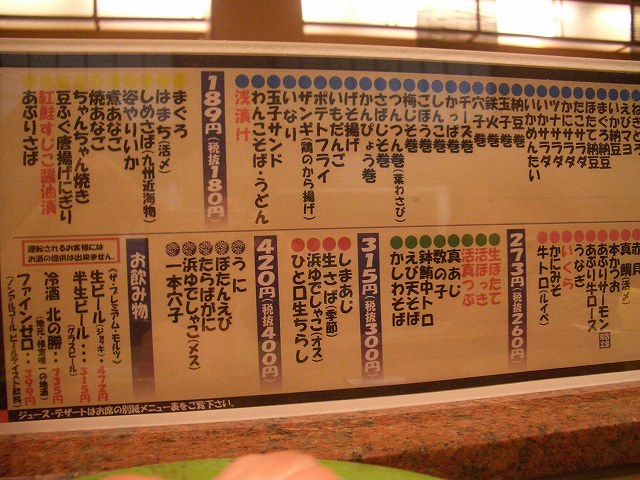 えびマヨ
まぐろ納豆
いか納豆
ほたて納豆
たこサラダ
かにサラダ
ツナサラダ
いかサラダ
いかめんたい
納豆巻
玉子巻
鉄火巻
穴子巻
チーズ巻
かっぱ巻
しんこ巻
ごぼう巻
梅じそ巻
つんつん巻(葉わさび)
さばじそ巻
かんぴょう巻
げそ揚げ
いもだんご
ポテトフライ
ザンギ(鶏のから揚げ)
いなり
玉子サンド
わんこそば・うどん
浅漬け
189円(税抜180円)
まぐろ
はまち(活〆)
しめさば(九州近海物)
姿やりいか
煮あなご
焼あなご
ちゃんちゃん焼き
豆ふぐ唐揚げにぎり
紅鮭すじこ醤油漬
あぶりさば
真鯛(活〆)
本かつお
あぶりサーモン
あぶり牛ロース
うなぎ
いくら
かにみそ
牛トロ(ルイベ)
273円(税抜260円)
生ほたて
活ほっき
活真つぶ
真あじ
数の子
鉢鮪中トロ
えび天そば
かしわそば
315円(税抜300円)
しまあじ
生さば(季節)
浜ゆでしゃこ(オス)
ひと口生ちらし
420円(税抜400円)
うに
ぼたんえび
たらばがに
浜ゆでしゃこ(メス)
一本穴子
お飲み物
運転されるお客様には
お酒の提供は出来ません。
(ザ・プレミアム・モルツ)
生ビール(ジョッキ)・472円
半生ビール・・・315円
(グラスビール)
冷酒 北の勝・・735円
(地元・根室唯一の地酒)
ファインゼロ・・399円
(ノンアルコールビールテイスト飲料)
ジュース・デザートはお席の別紙メニュー表をご覧下さい。